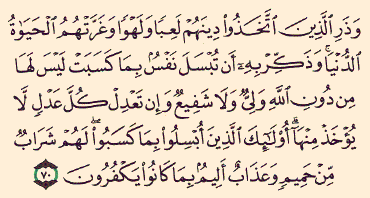 وَذَرِ ٱلَّذِينَ ٱتَّخَذُوا۟ دِينَهُمْ لَعِبًا وَلَهْوًا وَغَرَّتْهُمُ ٱلْحَيَوٰةُ
ٱلدُّنْيَا ۚ وَذَكِّرْ بِهِۦٓ أَن تُبْسَلَ نَفْسٌۢ بِمَا كَسَبَتْ لَيْسَ لَهَا
مِن دُونِ ٱللَّهِ وَلِىٌّ وَلَا شَفِيعٌ وَإِن تَعْدِلْ كُلَّ عَدْلٍ لَّا
يُؤْخَذْ مِنْهَآ ۗ أُو۟لَـٰٓئِكَ ٱلَّذِينَ أُبْسِلُوا۟ بِمَا كَسَبُوا۟ ۖ لَهُمْ شَرَابٌ
مِّنْ حَمِيمٍ وَعَذَابٌ أَلِيمٌۢ بِمَا كَانُوا۟ يَكْفُرُونَ ٧٠